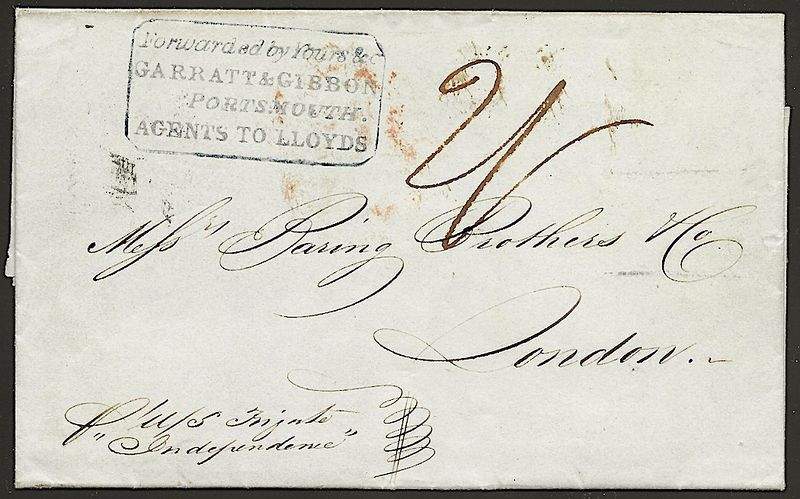 Forwarded by Yours &c
GARRATT & GIBBON
PORTSMOUTH.
AGENTS TO LLOYDS
Messrs Baring Brothers & Co
London.
U/S Frigate
"Independence"